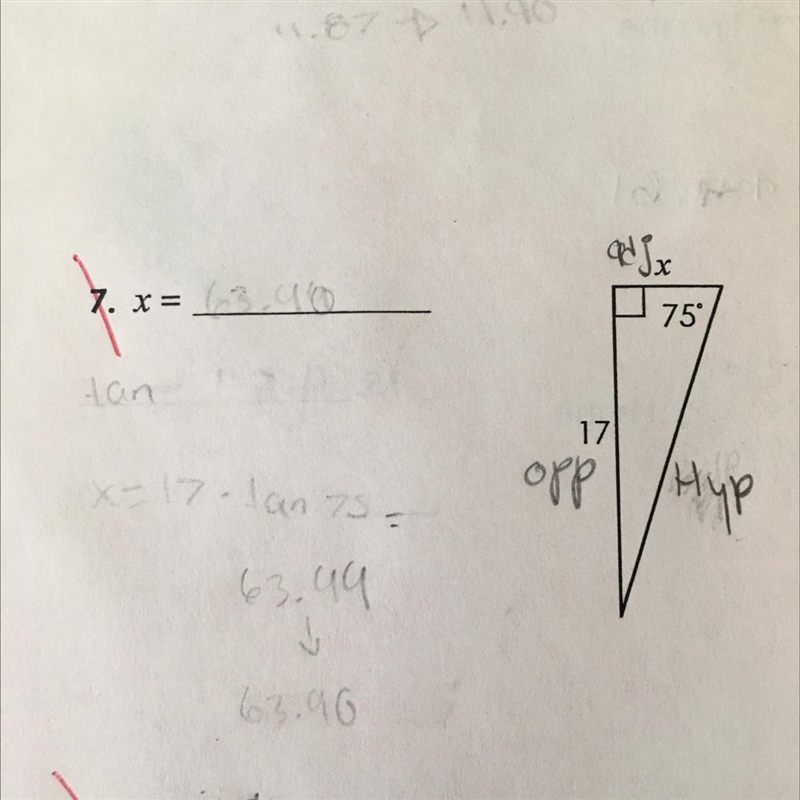 11.87 → 11.90
7. x = 63.40
tan
x = 17 · tan 75 =
63.44
↓
63.40
adj x
75°
17
opp
Hyp